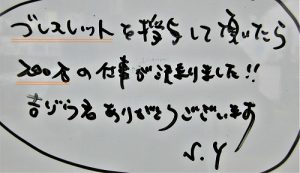 ブレスレットを授与して頂いたら
200万の仕事が決まりました!!
吉ゾウ君ありがとうございます
N.Y